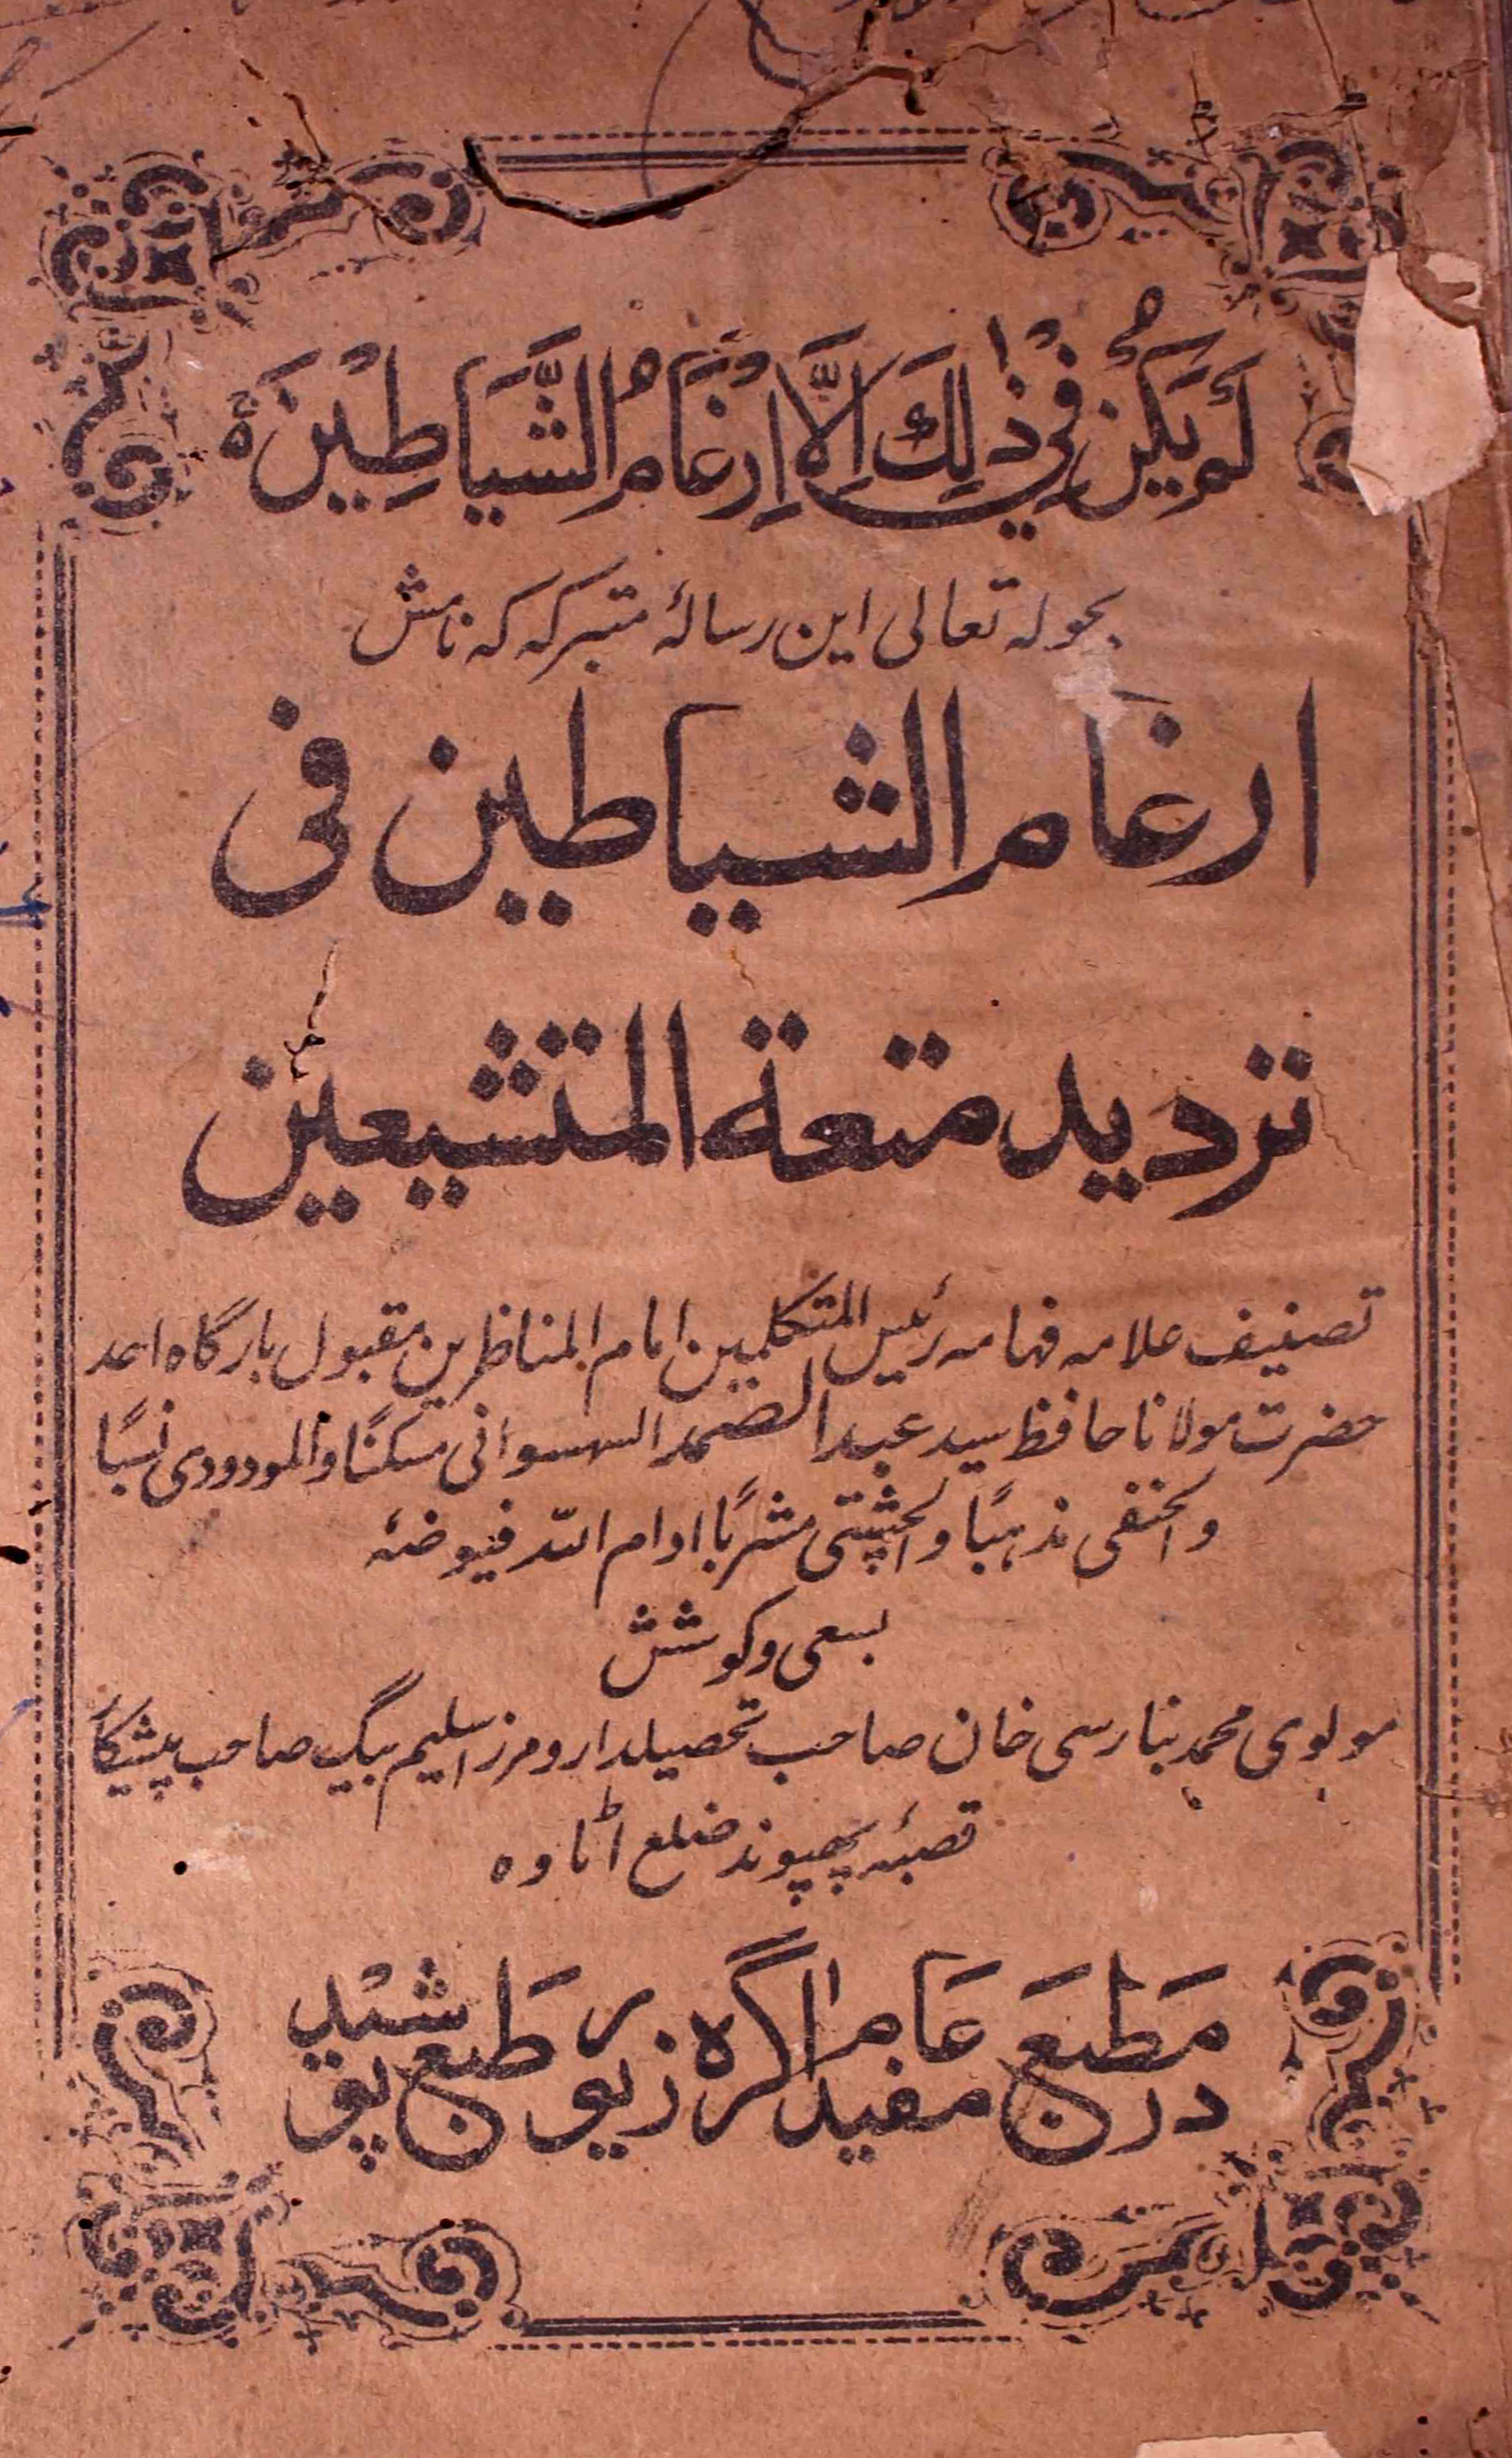 لَمْ يَكُنْ فِيْ ذٰلِكَ اِلَّا اِرْغَامُ الشَّيَاطِيْنَ ة
بحولہ تعالی این رسالۂ متبرکہ کہ نامش
ارغام الشیاطین فی
تردید متعة المتشیعین
تصنیف علامہ فہامہ رئیس المتکلمین امام المناظرین مقبول بارگاہ احد
حضرت مولانا حافظ سید عبد الصمد السہسوانی مسکنًا والمودودی نسبًا
والحنفی مذہبًا والچشتی مشربًا ادام اللہ فیوضہٗ
بسعی وکوشش
مولوی محمد بنارسی خان صاحب تحصیلدار و مرزا سلیم بیگ صاحب پیشکار
قصبۂ پھپوند ضلع اٹاوہ
در مَطبَع مفید عَام اگرہ زیور طَبع پوشید